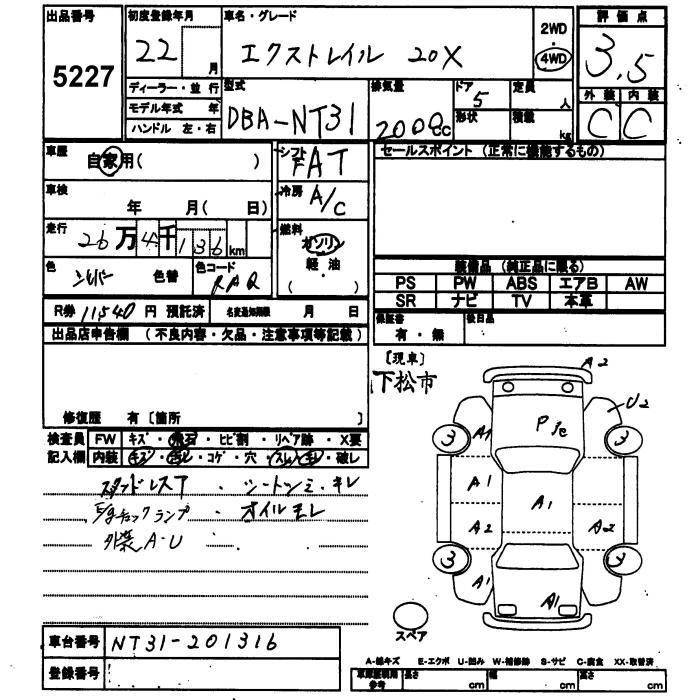 出品番号 初度登録年月 車名・グレード 評価点
5227 22 月 エクストレイル 20X 2WD・4WD 3.5
ディーラー・並 行
モデル年式 年
ハンドル 左・右
型式 DBA-NT31 排気量 2000cc ドア 5 形状 定員 人 積載 kg
外装 内装
C C
車歴 自家用( ) シフト FAT セールスポイント (正常に機能するもの)
車検 年 月( 日) 冷房 A/C
走行 26万4千136km 燃料 ガソリン
軽・油
( )
色 シルバー 色替 色コード
装備品 (純正品に限る)
PS PW ABS エアB AW
SR ナビ TV 本革
R券 11,540 円 預託済 名変通知期限 月 日
保証書 有・無 後日品
出品店申告欄 (不良内容・欠品・注意事項等記載)
[現車]
下松市
修復歴 有 [箇所 ]
検査員 FW キズ・飛石・ヒビ割・リペア跡・X要
記入欄 内装 キズ・汚レ・コゲ・穴・スレ・キレ・破レ
スタッドレスT・シートシミ・キレ
E/gチェックランプ・オイルモレ
外装 A-U
A2
U2
3 A1 P 3
A1 A1
A2 A2
3 A1 A1 3
スペア
車台番号 NT31-201316
登録番号
A-線キズ E-エクボ U-凹み W-補修跡 S-サビ C-腐食 XX-取替済
車庫証明用参考 長さ cm 幅 cm 高さ cm